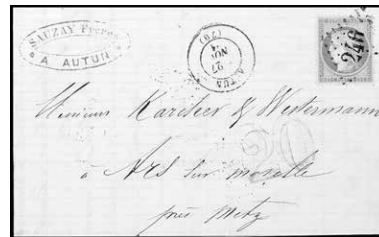 SAUZAY Frères
A AUTUN
AUTUN
27
NOV
(70)
246
Messieurs Karcher & Westermann
à Ars sur moselle
près Metz